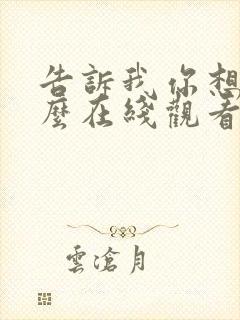 告訴我 你想
麼在綫觀看
雲滄月